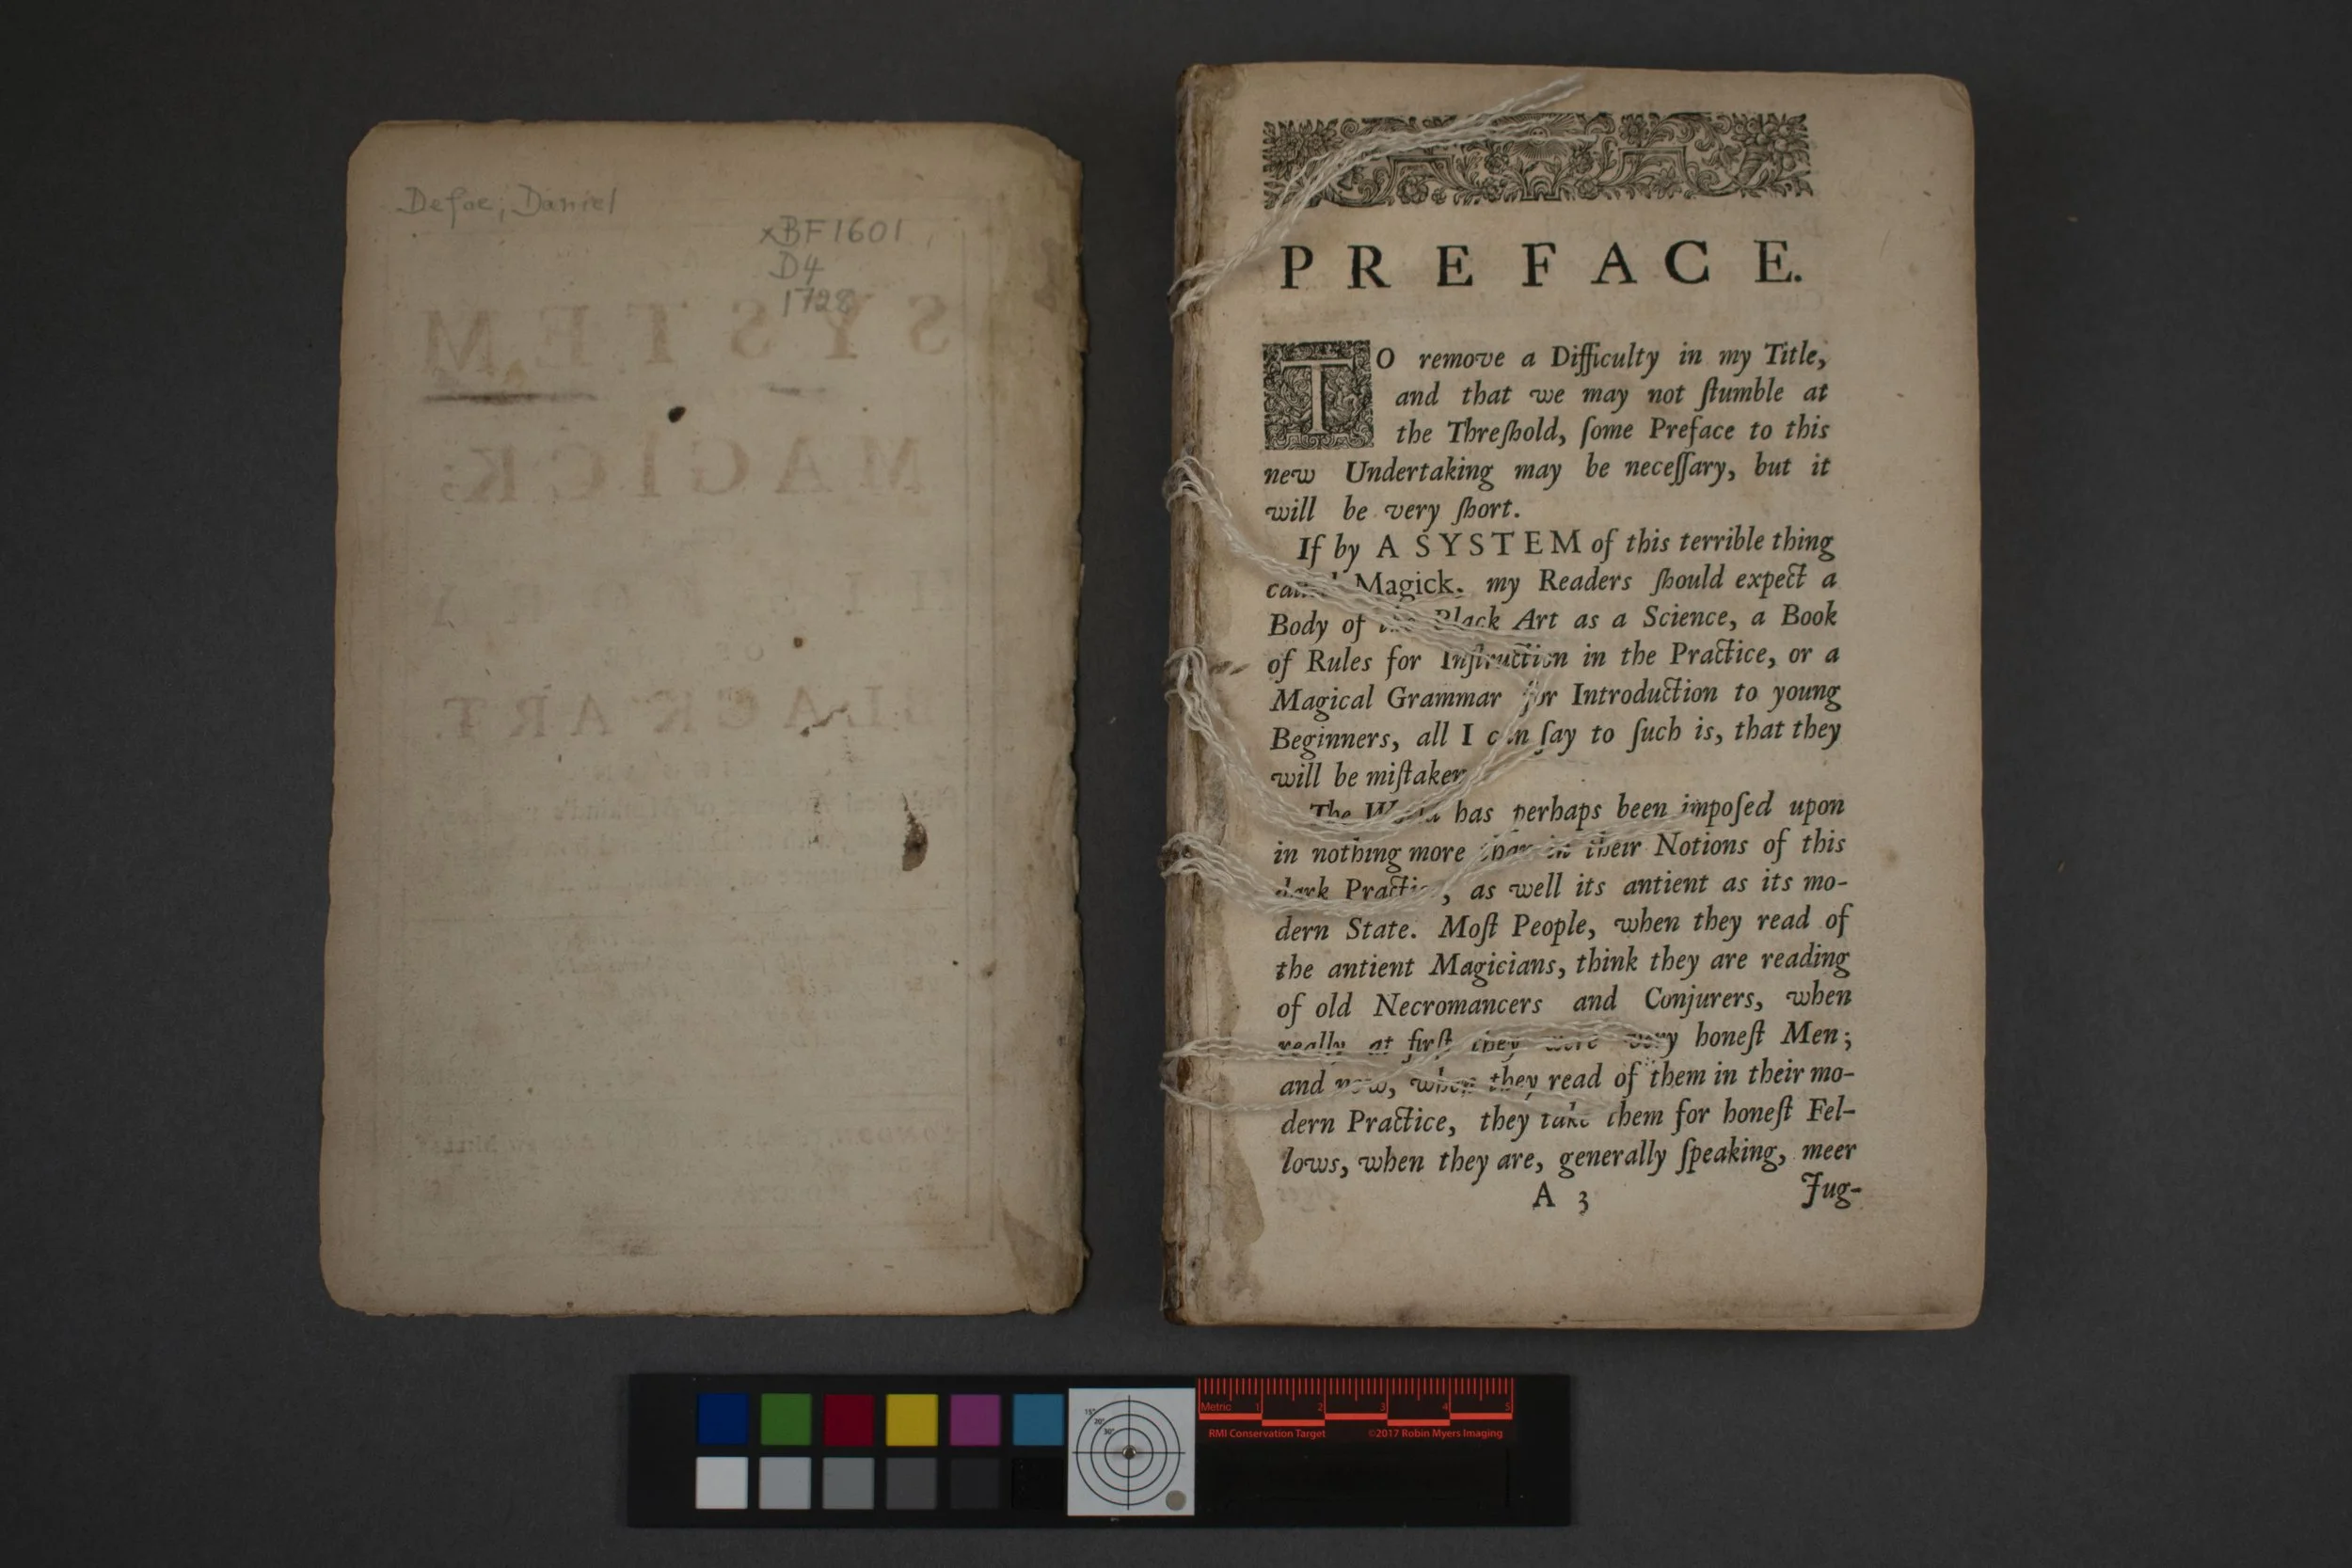 Defoe, Daniel
xBF1601
D4
1728
SYSTEM
MAGICK;
BLACK ART.
PREFACE.
TO remove a Difficulty in my Title,
and that we may not ſtumble at
the Threſhold, ſome Preface to this
new Undertaking may be neceſſary, but it
will be very ſhort.
If by A SYSTEM of this terrible thing
Magick, my Readers ſhould expect a
Body of the Black Art as a Science, a Book
of Rules for Inſtruction in the Practice, or a
Magical Grammar for Introduction to young
Beginners, all I can ſay to ſuch is, that they
will be miſtaken
The World has perhaps been impoſed upon
in nothing more than in their Notions of this
dark Practice, as well its antient as its mo-
dern State. Moſt People, when they read of
the antient Magicians, think they are reading
of old Necromancers and Conjurers, when
really at firſt they were very honeſt Men;
and now, when they read of them in their mo-
dern Practice, they take them for honeſt Fel-
lows, when they are, generally ſpeaking, meer
A 3 Jug-
15°
20°
30°
Metric 1 2 3 4 5
RMI Conservation Target ©2017 Robin Myers Imaging